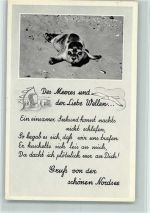 Des Meeres und
der Liebe Wellen.
Ein einsamer Seehund konnt nachts
nicht schlafen,
So begab es sich, daß wir uns trafen
Er kuschelte sich leis an mich,
Da dacht ich plötzlich nur an Dich!
Gruß von der
schönen Nordsee